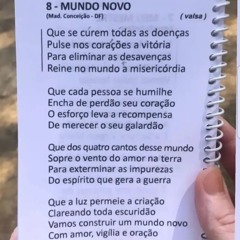 8 - MUNDO NOVO
(Mad. Conceição - DF) ( valsa )
Que se curem todas as doenças
Pulse nos corações a vitória
Para eliminar as desavenças
Reine no mundo à misericórdia
Que cada pessoa se humilhe
Encha de perdão seu coração
O esforço leva a recompensa
De merecer o seu galardão
Que dos quatro cantos desse mundo
Sopre o vento do amor na terra
Para exterminar as impurezas
Do espírito que gera a guerra
Que a luz permeie a criação
Clareando toda escuridão
Vamos construir um mundo novo
Com amor, vigília e oração